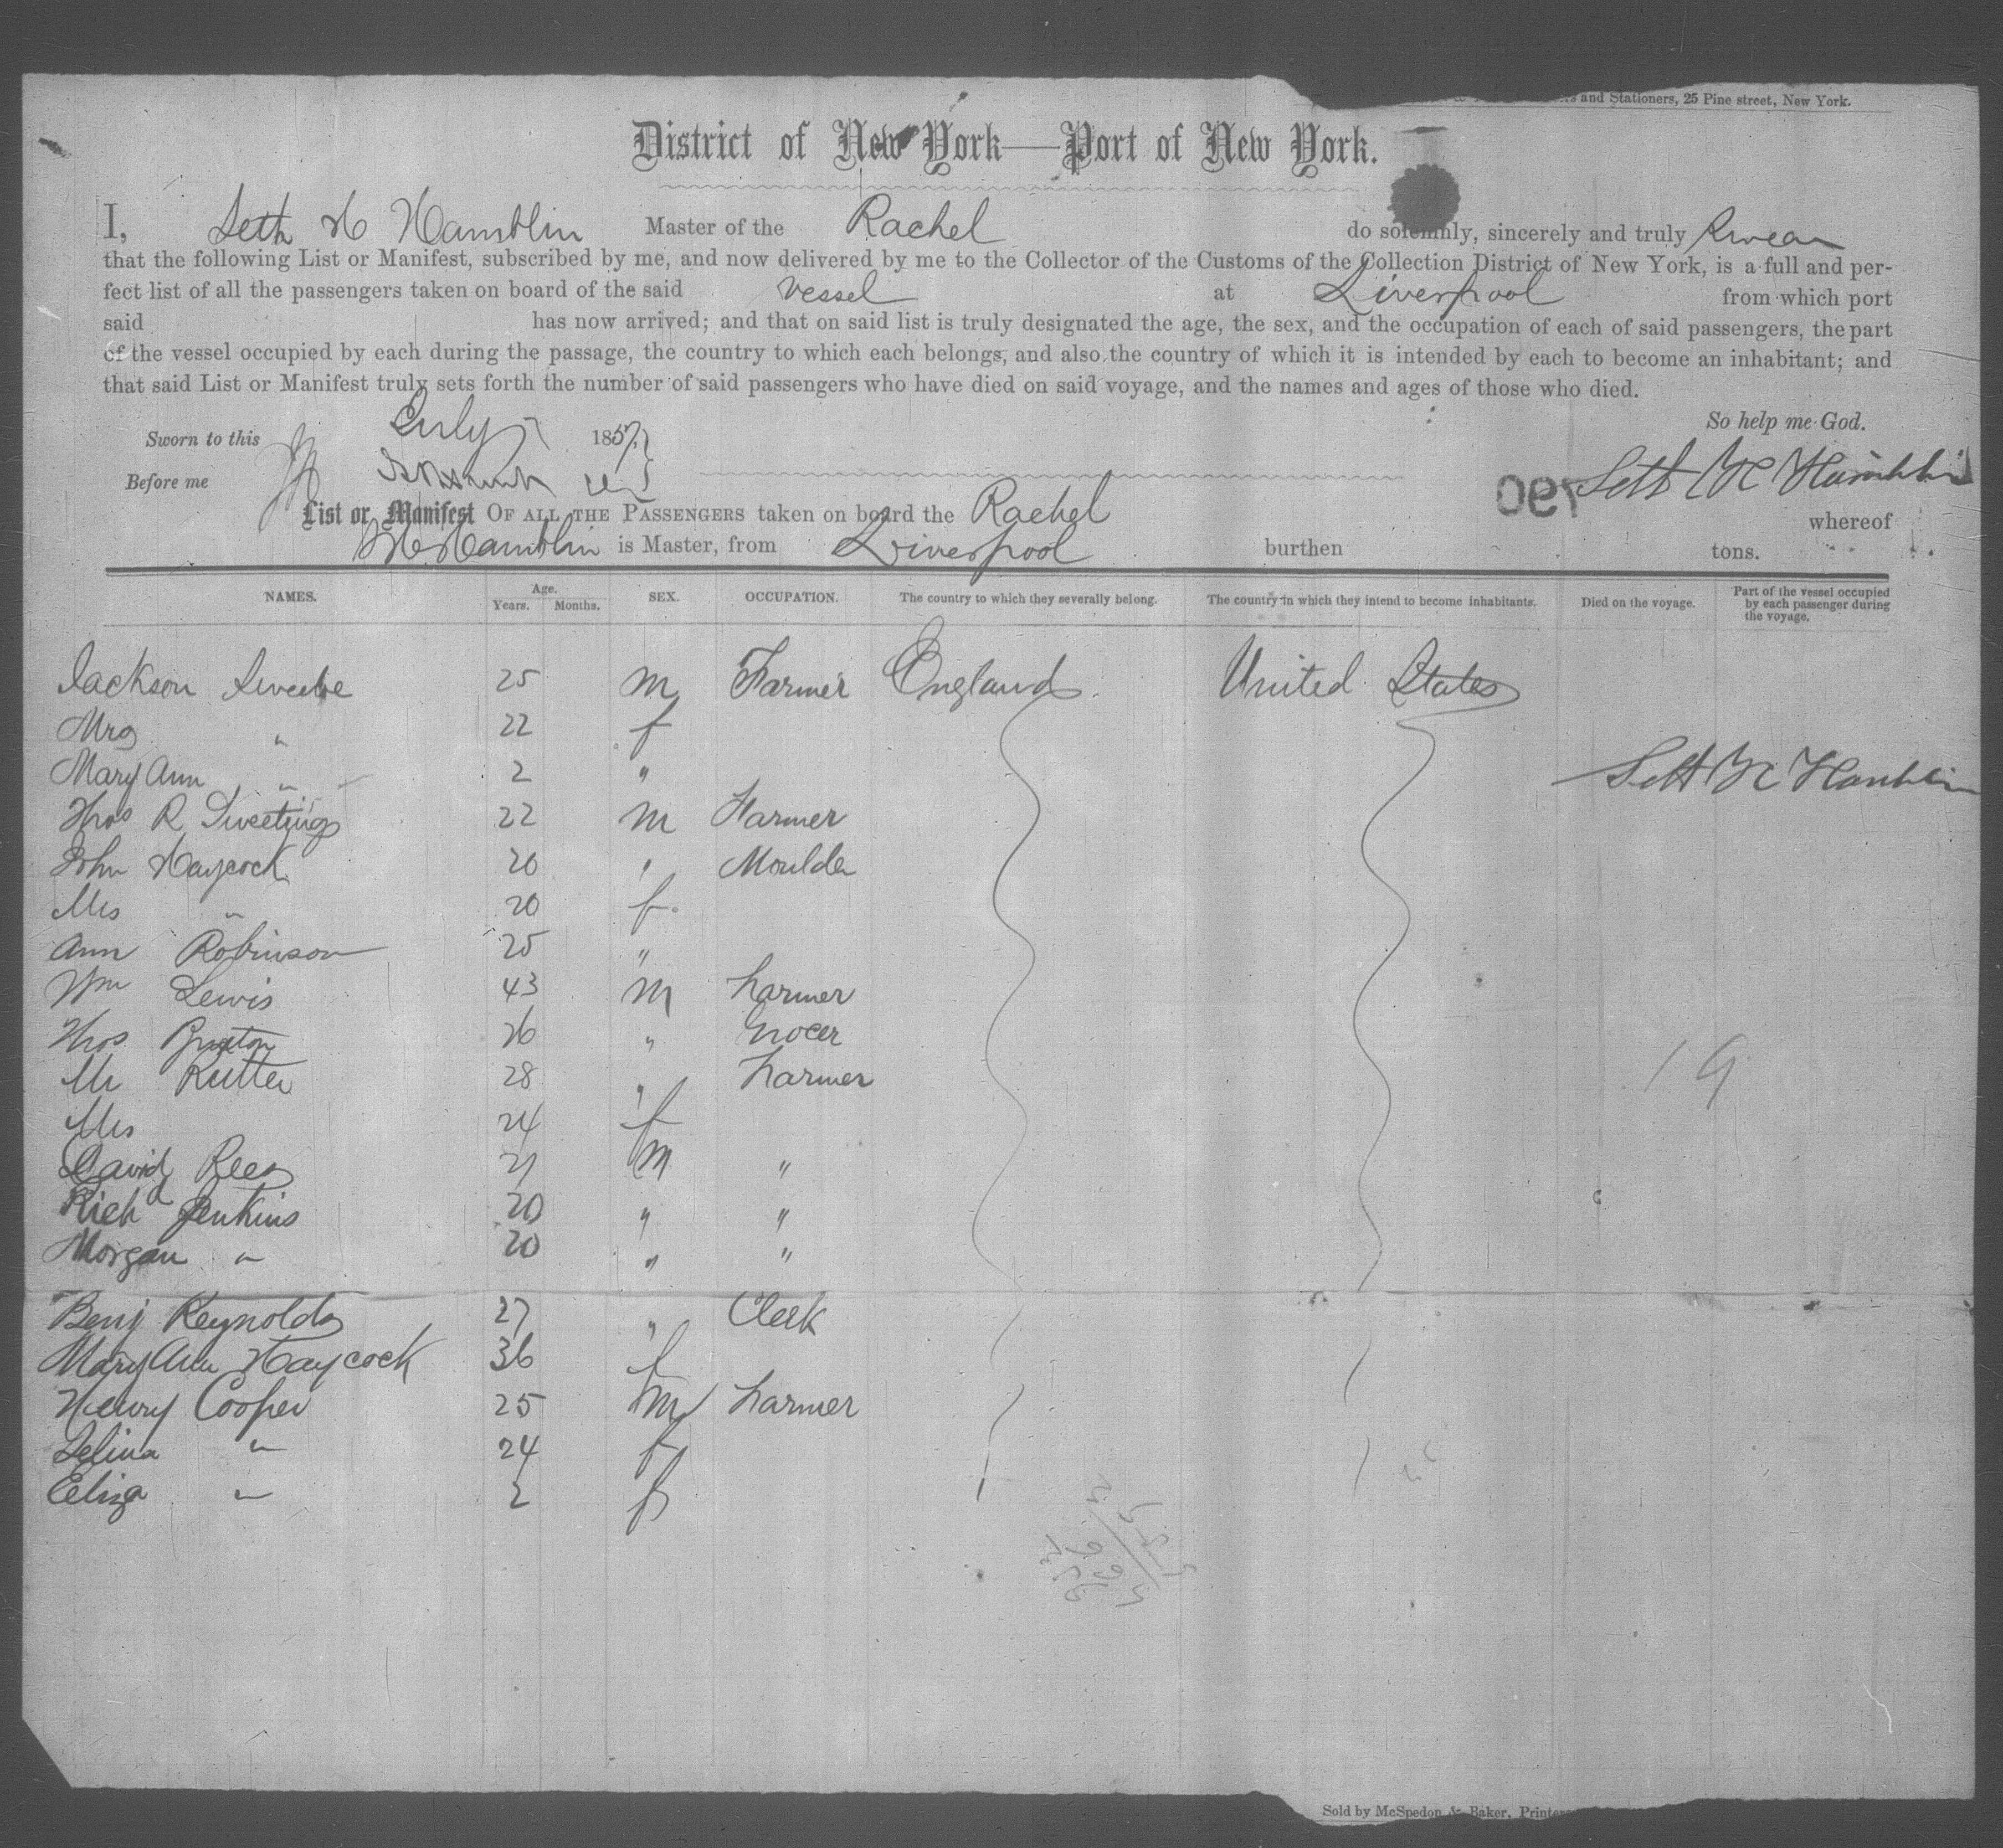 and Stationers, 25 Pine street, New York.
District of New York—Port of New York.
I, Seth H Hamblin Master of the Rachel do solemnly, sincerely and truly swear
that the following List or Manifest, subscribed by me, and now delivered by me to the Collector of the Customs of the Collection District of New York, is a full and per-
fect list of all the passengers taken on board of the said vessel at Liverpool from which port
said has now arrived; and that on said list is truly designated the age, the sex, and the occupation of each of said passengers, the part
of the vessel occupied by each during the passage, the country to which each belongs, and also the country of which it is intended by each to become an inhabitant; and
that said List or Manifest truly sets forth the number of said passengers who have died on said voyage, and the names and ages of those who died.
So help me God.
Sworn to this July 7 1857
Before me
Seth H Hamblin
190
List or Manifest OF ALL THE PASSENGERS taken on board the Rachel whereof
H Hamblin is Master, from Liverpool burthen tons.
NAMES. Age. Years. Months. SEX. OCCUPATION. The country to which they severally belong. The country in which they intend to become inhabitants. Died on the voyage. Part of the vessel occupied by each passenger during the voyage.
Jackson 25 M Farmer England United States
Mrs " 22 f
Mary Ann " 2 "
Seth H Hamblin
Thos R Sweeting 22 M Farmer
John Haycock 20 " Moulder
Mrs " 20 f
Ann Robinson 25 "
Wm Lewis 43 M Farmer
Thos Buxton 26 " Grocer
Mr Rutter 28 " Farmer
19
Mrs 24 f
David Rees 21 M "
Rich Jenkins 20 " "
Morgan " 20 " "
Benj Reynolds 27 " Clerk
Mary Ann Haycock 36 f
Henry Cooper 25 M Farmer
Selina " 24 f
Eliza " 2 f
Sold by McSpedon & Baker, Printers